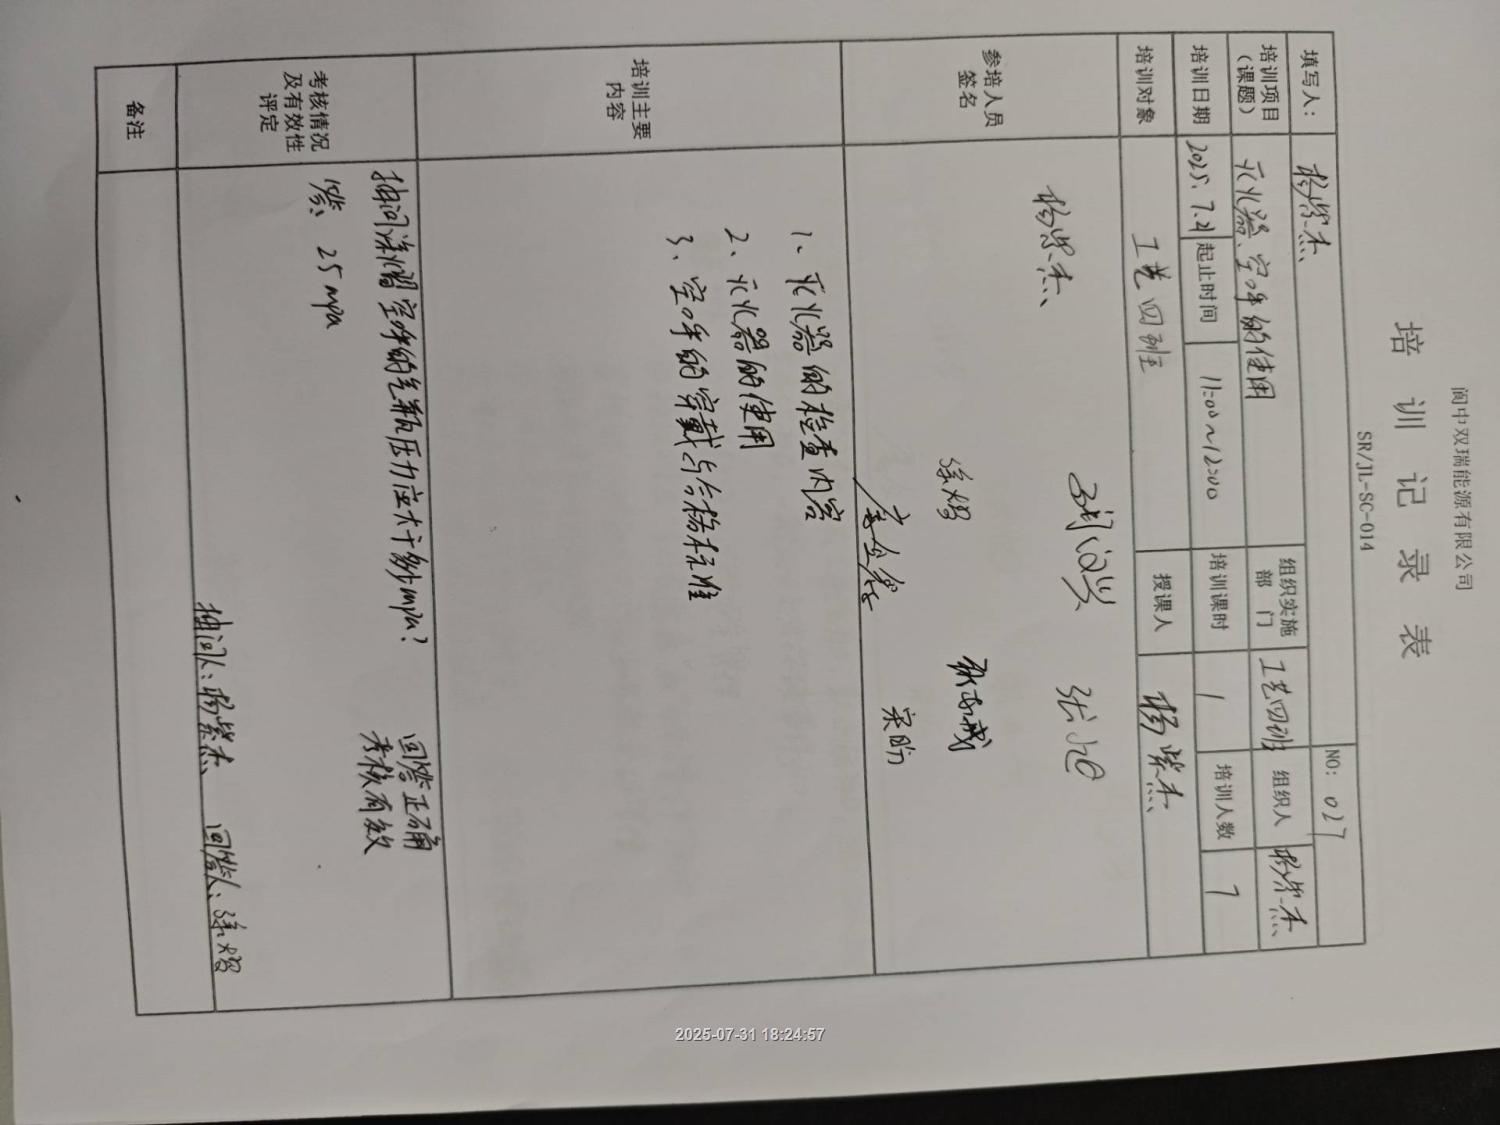 阆中双瑞能源有限公司
培训记录表
SR/JL-SC-014
NO: 027
填写人: 杨紫杰
培训项目(课题) 灭火器、空呼的使用 组织实施部门 工艺四班 组织人 杨紫杰
培训日期 2025.7.21 起止时间 11:00~12:00 培训课时 1 培训人数 7
培训对象 工艺四班 授课人 杨紫杰
参培人员签名
杨紫杰 张旭
徐熠
宋昕
培训主要内容
1、灭火器的检查内容
2、灭火器的使用
3、空呼的穿戴与合格标准
考核情况及有效性评定
抽问徐熠空呼的气瓶压力应大于多少mpa? 回答正确
考核有效
答: 25mpa
抽问人: 杨紫杰 回答人: 徐熠
备注
2025-07-31 18:24:57